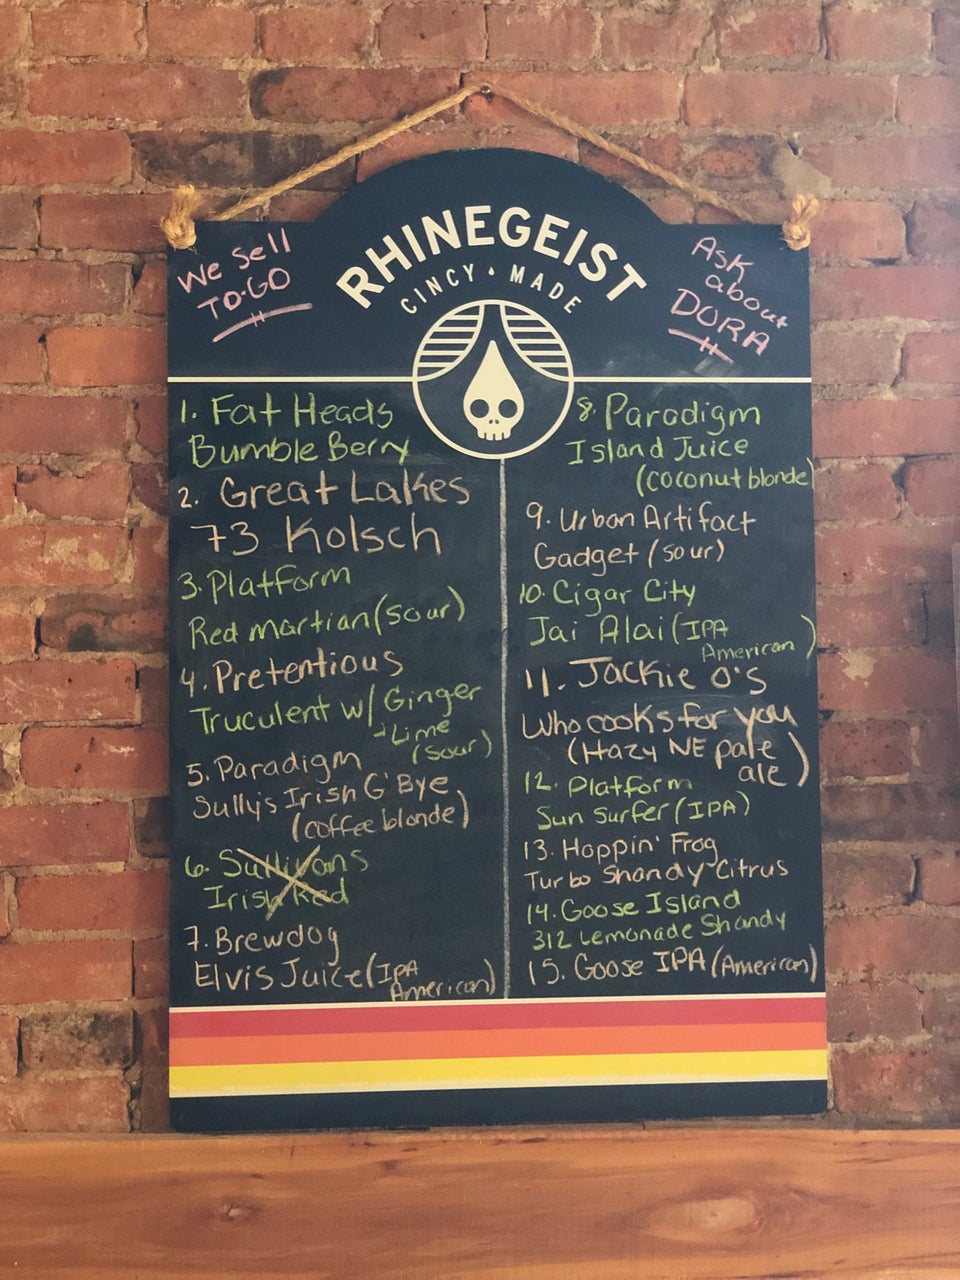 We sell
TO-GO
RHINEGEIST
CINCY • MADE
Ask
about
DORA
1. Fat Heads
Bumble Berry
2. Great Lakes
73 Kolsch
3. Platform
Red Martian (Sour)
4. Pretentious
Truculent w/ Ginger
-Lime
(sour)
5. Paradigm
Sully's Irish G'Bye
(coffee blonde)
6. Sullivans
Irish Red
7. Brewdog
Elvis Juice (IPA
American)
8. Paradigm
Island Juice
(coconut blonde)
9. Urban Artifact
Gadget (sour)
10. Cigar City
Jai Alai (IPA
American)
11. Jackie O's
Who cooks for you
(Hazy NE pale
ale)
12. Platform
Sun Surfer (IPA)
13. Hoppin' Frog
Turbo Shandy Citrus
14. Goose Island
312 Lemonade Shandy
15. Goose IPA (American)